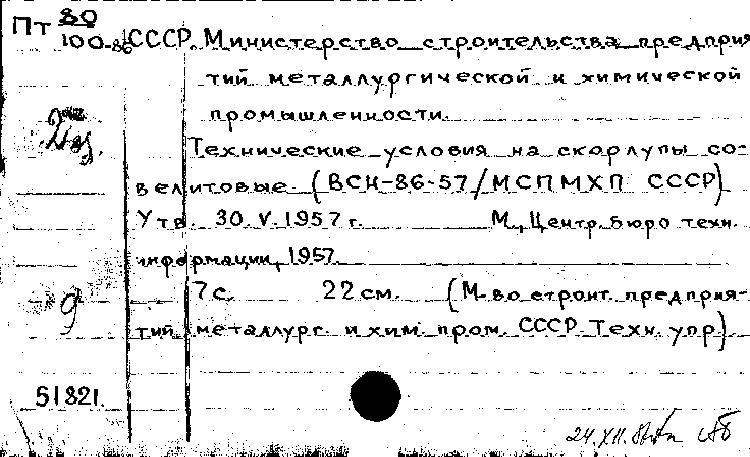 Пт 80
100-86 СССР. Министерство строительства предприя
тий металлургической и химической
промышленности.
Технические условия на скорлупы со-
велитовые. (ВСН-86-57/МСПМХП СССР)
Утв. 30.V.1957 г. М., Центр. бюро техн.
информации, 1957.
7 с. 22 см. (М-во строит. предприя-
тий металлург. и хим. пром. СССР. Техн. упр)
9
51821.
24.XII.